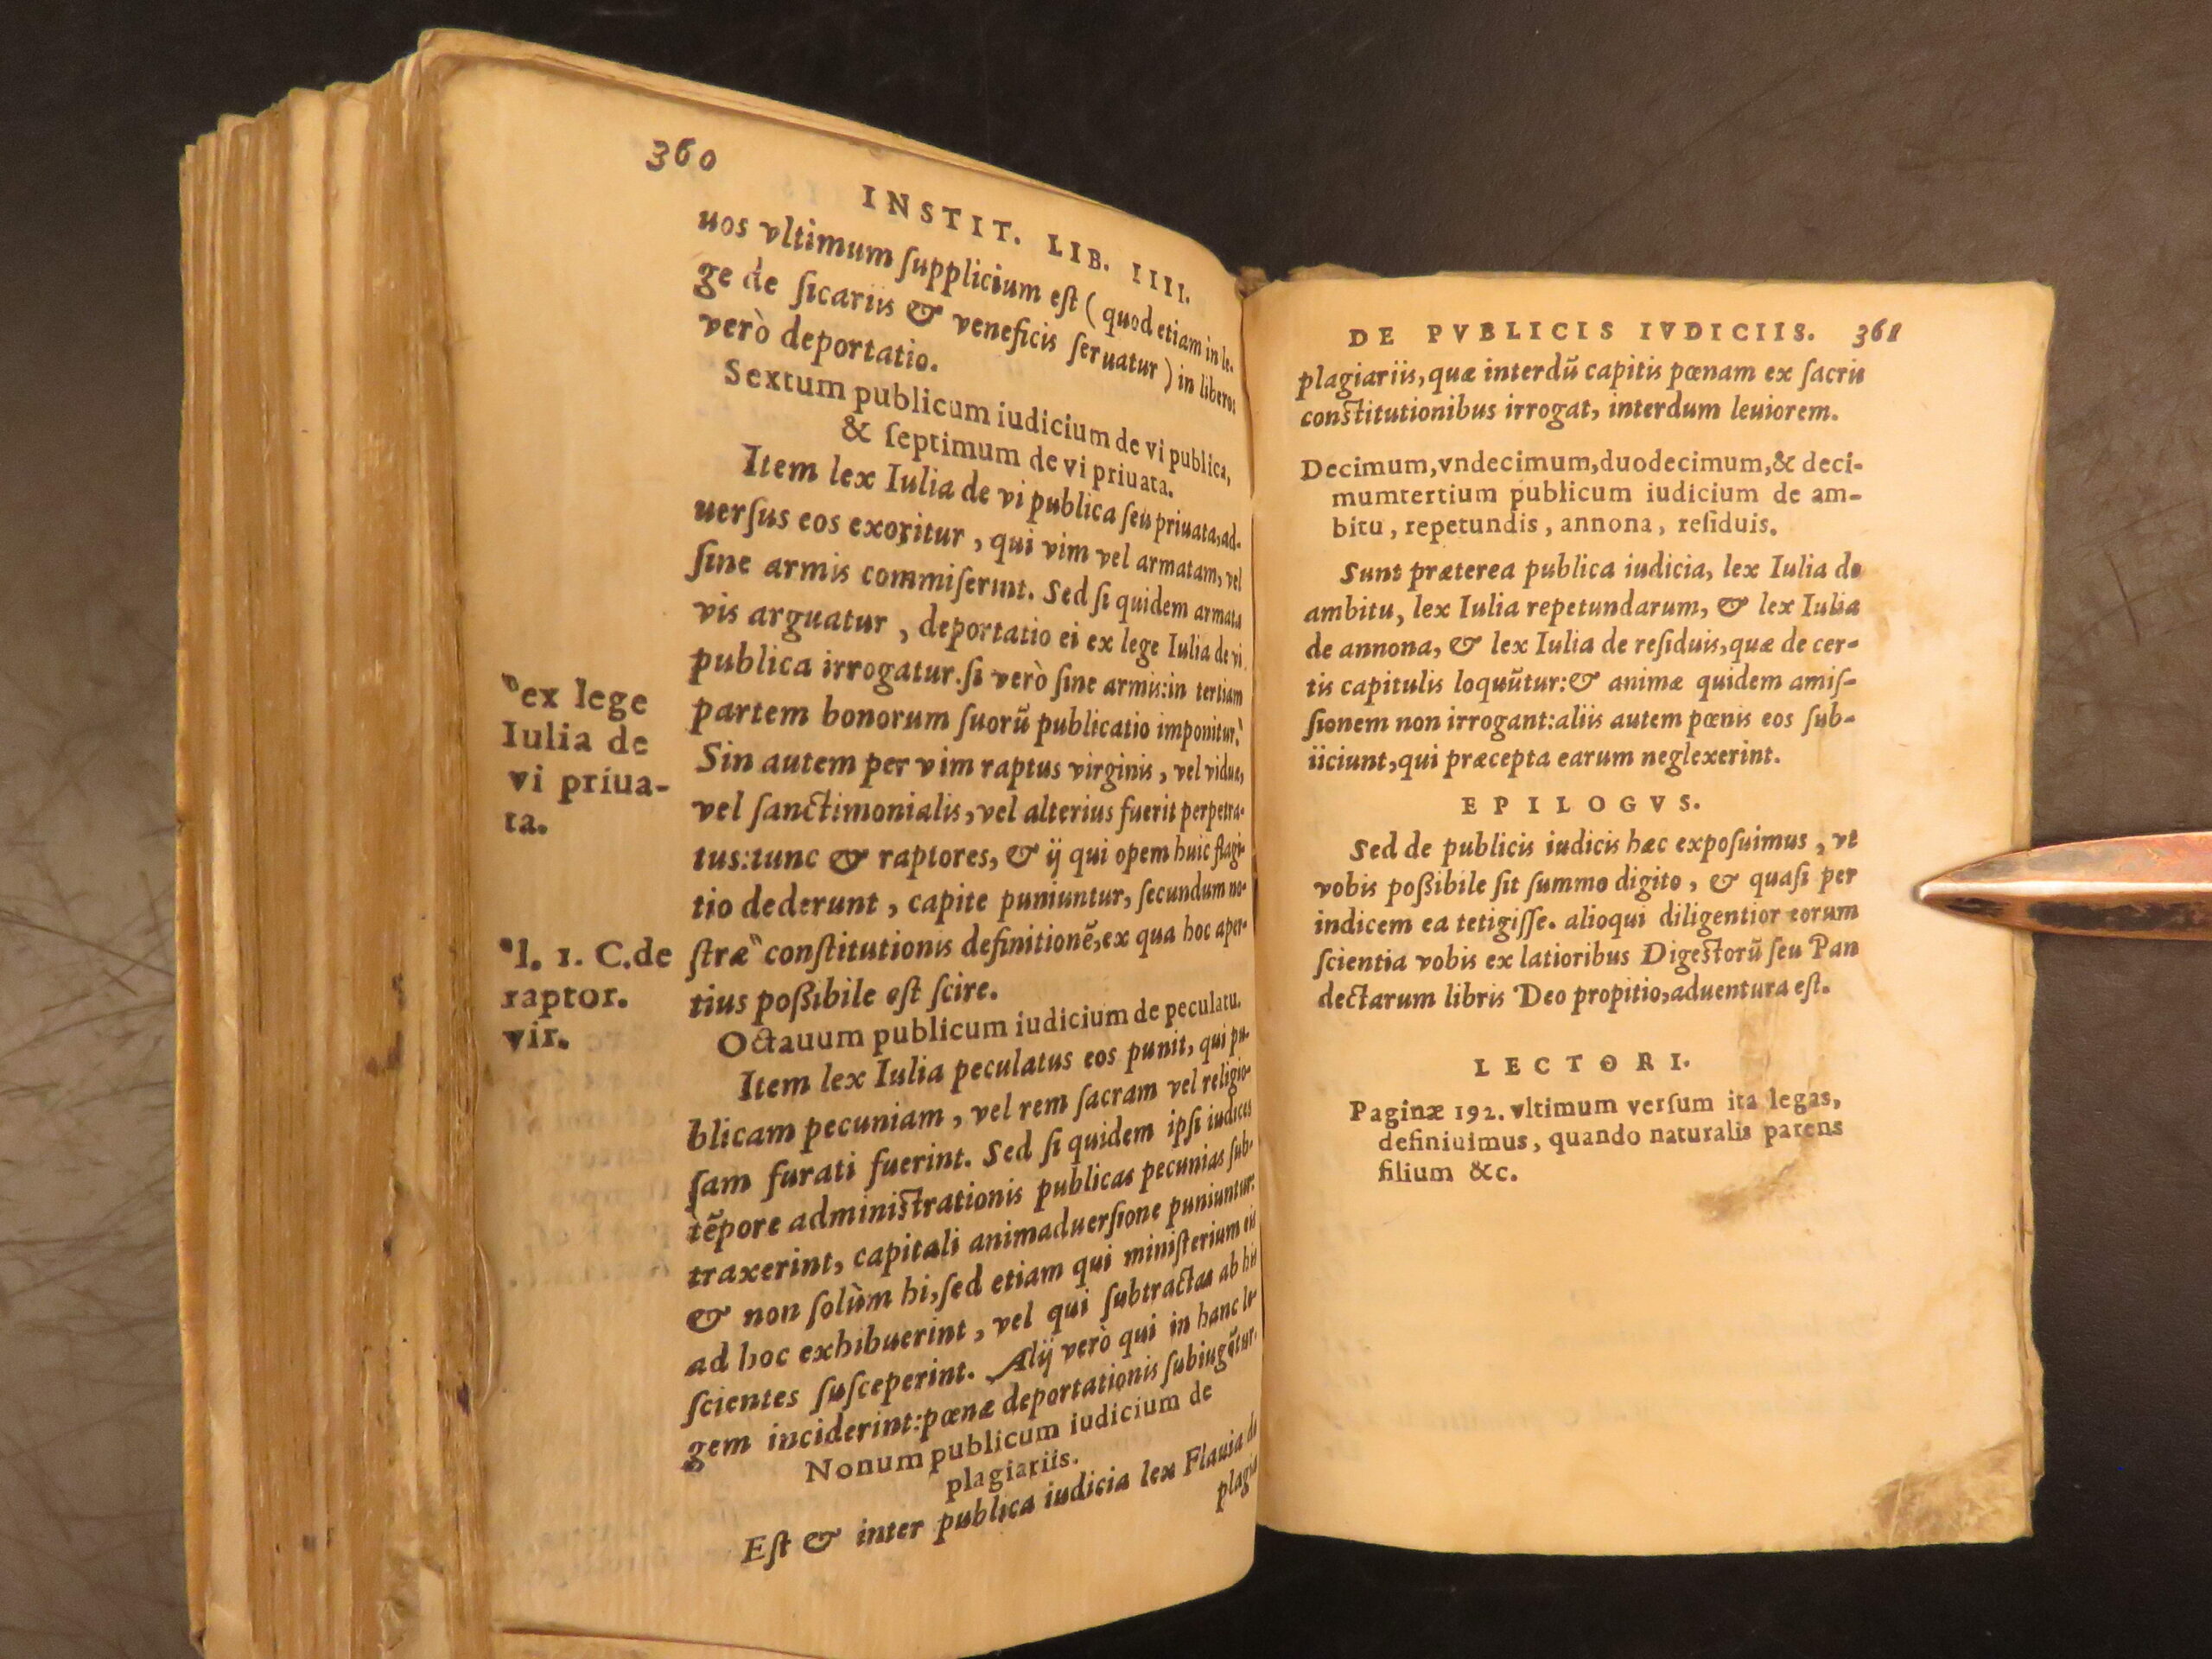 360
INSTIT. LIB. IIII.
uos vltimum ſupplicium eſt (quod etiam in le-
ge de ſicariis & veneficis ſeruatur) in liberos
verò deportatio.
Sextum publicum iudicium de vi publica,
& ſeptimum de vi priuata.
Item lex Iulia de vi publica ſeu priuata, ad-
uerſus eos exoritur, qui vim vel armatam, vel
ſine armis commiſerint. Sed ſi quidem armata
vis arguatur, deportatio ei ex lege Iulia de vi
publica irrogatur. ſi verò ſine armis: in tertiam
partem bonorum ſuorũ publicatio imponitur.
Sin autem per vim raptus virginis, vel viduæ,
vel ſanctimonialis, vel alterius fuerit perpetra-
tus: tunc & raptores, & ij qui opem huic flagi-
tio dederunt, capite puniuntur, ſecundum no-
ſtræ conſtitutionis definitionẽ, ex qua hoc aper-
tius poßibile eſt ſcire.
Octauum publicum iudicium de peculatu.
Item lex Iulia peculatus eos punit, qui pu-
blicam pecuniam, vel rem ſacram vel religio-
ſam furati fuerint. Sed ſi quidem ipſi iudices
tẽpore adminiſtrationis publicas pecunias ſub-
traxerint, capitali animaduerſione puniuntur:
& non ſolùm hi, ſed etiam qui miniſterium eis
ad hoc exhibuerint, vel qui ſubtractas ab his
ſcientes ſuſceperint. Alij verò qui in hanc le-
gem inciderint: pœnæ deportationis ſubiugãtur.
Nonum publicum iudicium de
plagiariis.
Eſt & inter publica iudicia lex Flauia de
plagia
ex lege
Iulia de
vi priua-
ta.
l. 1. C. de
raptor.
vir.
DE PVBLICIS IVDICIIS. 361
plagiariis, quæ interdũ capitis pœnam ex ſacris
conſtitutionibus irrogat, interdum leuiorem.
Decimum, vndecimum, duodecimum, & deci-
mumtertium publicum iudicium de am-
bitu, repetundis, annona, reſiduis.
Sunt præterea publica iudicia, lex Iulia de
ambitu, lex Iulia repetundarum, & lex Iulia
de annona, & lex Iulia de reſiduis, quæ de cer-
tis capitulis loquũtur: & animæ quidem amiſ-
ſionem non irrogant: aliis autem pœnis eos ſub-
iiciunt, qui præcepta earum neglexerint.
EPILOGVS.
Sed de publicis iudicis hæc expoſuimus, vt
vobis poßibile ſit ſummo digito, & quaſi per
indicem ea tetigiſſe. alioqui diligentior eorum
ſcientia vobis ex latioribus Digeſtorũ ſeu Pan
dectarum libris Deo propitio, aduentura eſt.
LECTORI.
Paginæ 192. vltimum verſum ita legas,
definiuimus, quando naturalis parens
filium &c.